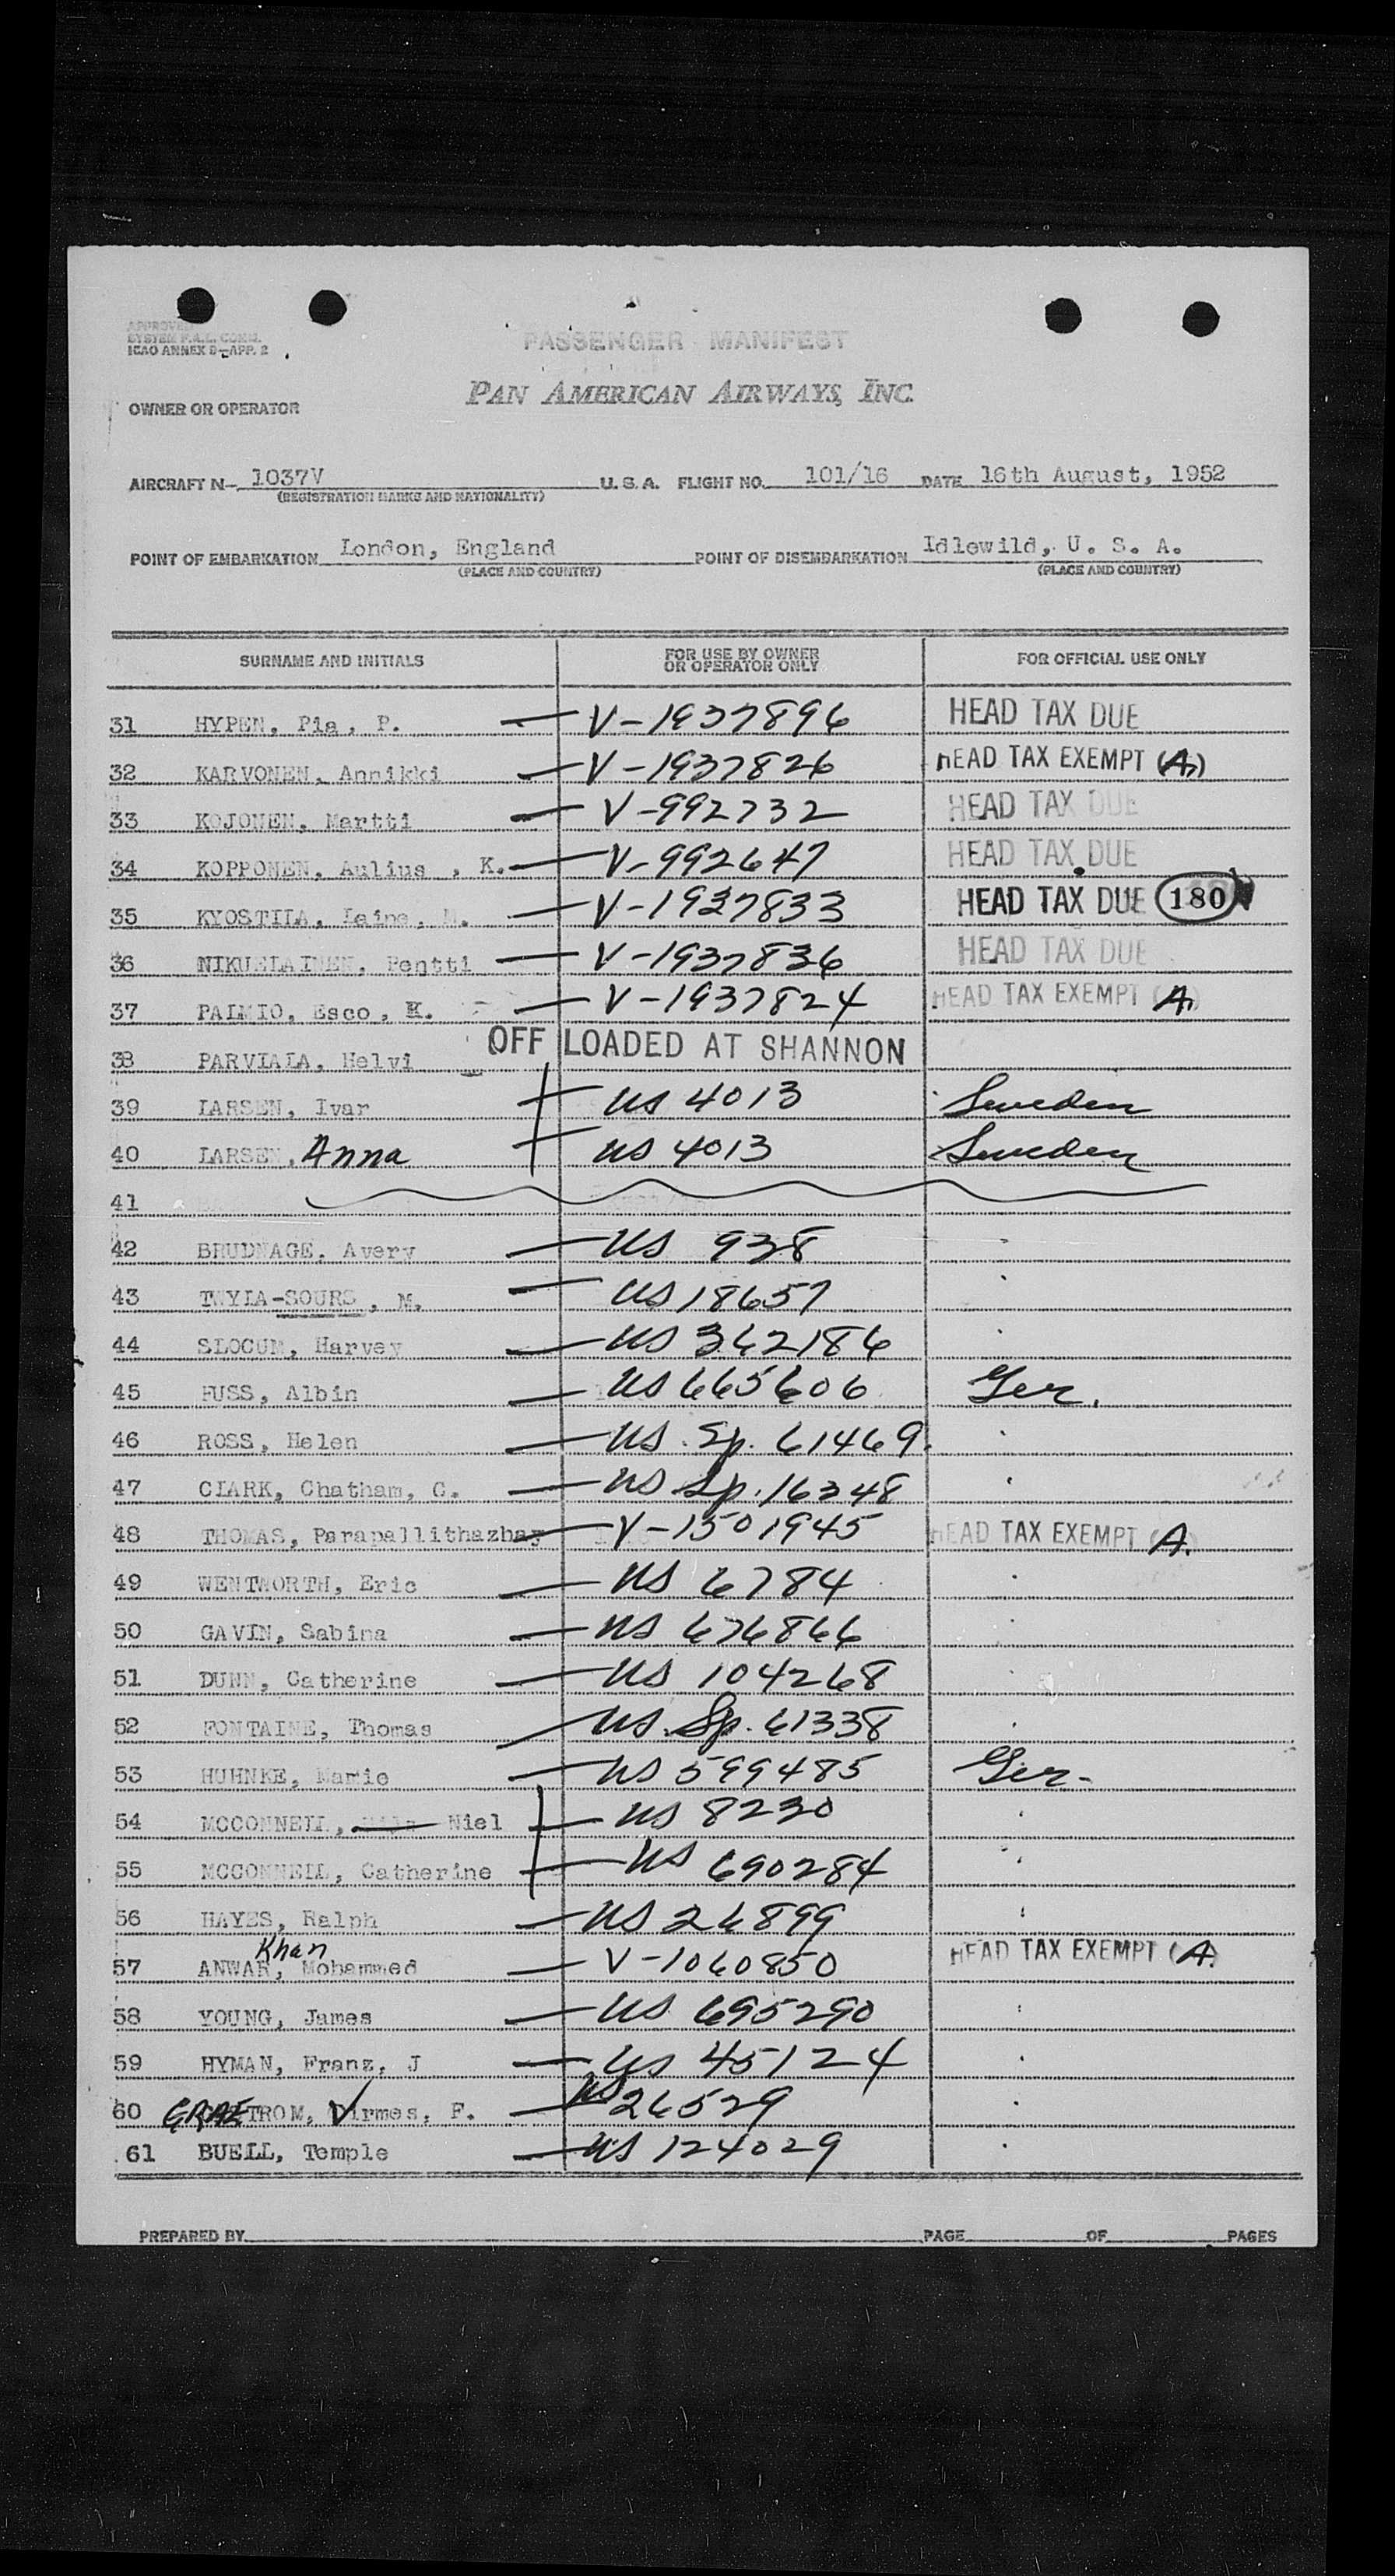 APPROVED
SYSTEM F.A.L. COMM.
ICAO ANNEX 9—APP. 2
PASSENGER MANIFEST
OWNER OR OPERATOR PAN AMERICAN AIRWAYS, INC.
AIRCRAFT N- 1037V U. S. A. FLIGHT NO. 101/16 DATE 16th August, 1952
(REGISTRATION MARKS AND NATIONALITY)
POINT OF EMBARKATION London, England POINT OF DISEMBARKATION Idlewild, U. S. A.
(PLACE AND COUNTRY) (PLACE AND COUNTRY)
SURNAME AND INITIALS FOR USE BY OWNER OR OPERATOR ONLY FOR OFFICIAL USE ONLY
31 HYPEN, Pia, P. V-1937896 HEAD TAX DUE
32 KARVONEN, Annikki V-1937826 HEAD TAX EXEMPT (A)
33 KOJONEN, Martti V-992732 HEAD TAX DUE
34 KOPPONEN, Aulius , K. V-992647 HEAD TAX DUE
35 KYOSTILA, Laina, M. V-1937833 HEAD TAX DUE 180
36 NIKULAINEN, Pentti V-1937836 HEAD TAX DUE
37 PALMIO, Esco, K. V-1937824 HEAD TAX EXEMPT (A)
38 PARVIALA, Helvi OFF LOADED AT SHANNON
39 LARSEN, Ivar US 4013 Sweden
40 LARSEN, Anna US 4013 Sweden
41
42 BRUDNAGE, Avery US 938
43 TWYLA-SOURS, M. US 18657
44 SLOCUM, Harvey US 362186
45 FUSS, Albin US 665606 Ger.
46 ROSS, Helen US Sp. 61469.
47 CLARK, Chatham, C. US Sp. 16348
48 THOMAS, Parapallithazhay V-1501945 HEAD TAX EXEMPT (A.
49 WENTWORTH, Eric US 6784
50 GAVIN, Sabina US 676866
51 DUNN, Catherine US 104268
52 FONTAINE, Thomas US. Sp. 61338
53 HUHNKE, Marie US 599485 Ger-
54 MCCONNELL, Niel US 8230
55 MCCONNELL, Catherine US 690284
56 HAYES, Ralph US 26899
Khan
57 ANWAR, Mohammed V-1060850 HEAD TAX EXEMPT (A.
58 YOUNG, James US 695290
59 HYMAN, Franz, J US 45124
60 GRAETROM, Virmes, F. US 26529
61 BUELL, Temple US 124029
PREPARED BY PAGE OF PAGES